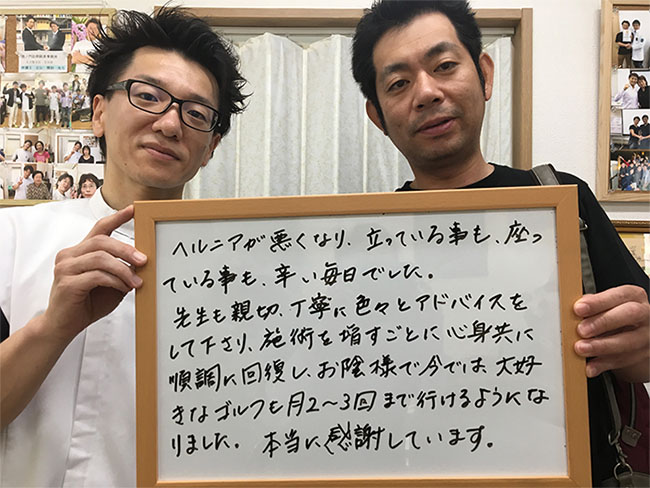 ヘルニアが悪くなり、立っている事も、座っ
ている事も、辛い毎日でした。
先生も親切、丁寧に色々とアドバイスを
して下さり、施術を増すごとに心身共に
順調に回復し、お陰様で今では、大好
きなゴルフも月2〜3回まで行けるようにな
りました。本当に感謝しています。